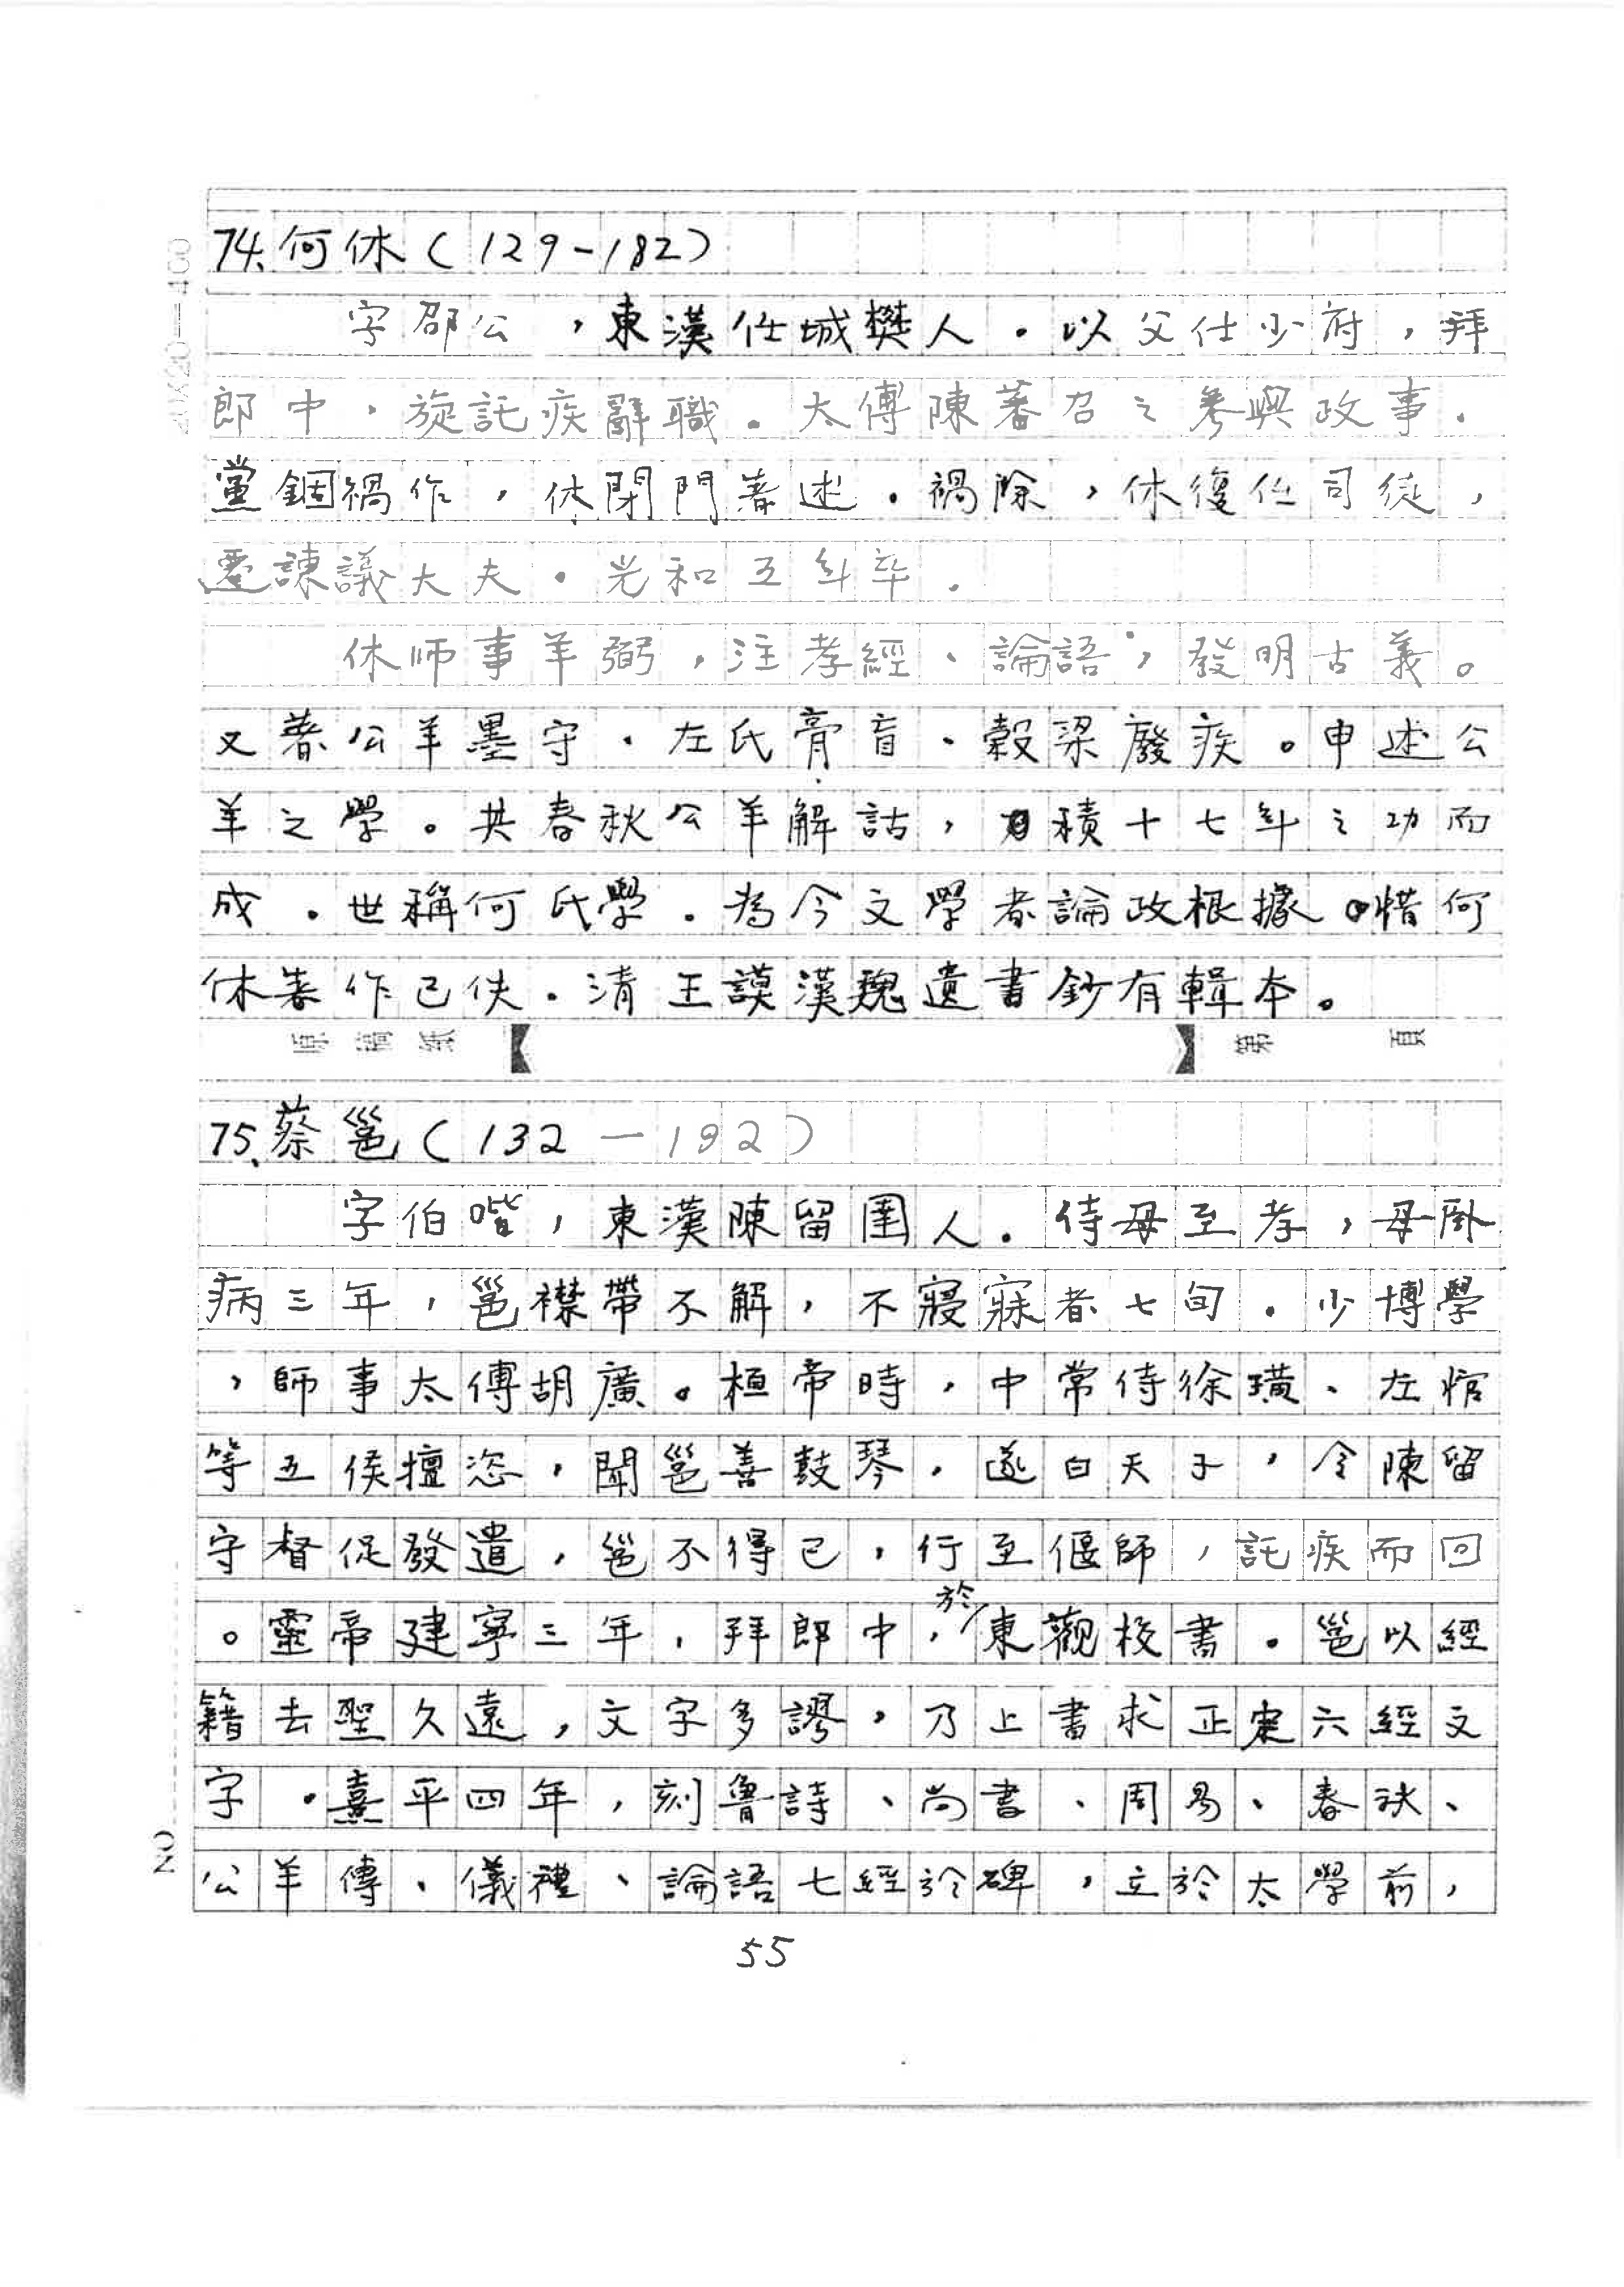 74.何休(129-182)
字邵公,東漢任城樊人。以父仕少府,拜
郎中,旋託疾辭職。太傅陳蕃召之參與政事。
黨錮禍作,休閉門著述。禍除,休復仕司徒,
遷諫議大夫。光和五年卒。
休師事羊弼,注孝經、論語,發明古義。
又著公羊墨守、左氏膏肓、穀梁廢疾。申述公
羊之學。其春秋公羊解詁,積十七年之功而
成。世稱何氏學。為今文學者論政根據。惜何
休著作已佚。清王謨漢魏遺書鈔有輯本。
原稿紙 第 頁
75.蔡邕(132-192)
字伯喈,東漢陳留圉人。侍母至孝,母臥
病三年,邕襟帶不解,不寢寐者七旬。少博學
,師事太傅胡廣。桓帝時,中常侍徐璜、左悺
等五侯擅恣,聞邕善鼓琴,遂白天子,令陳留
守督促發遣,邕不得已,行至偃師,託疾而回
。靈帝建寧三年,拜郎中,於東觀校書。邕以經
籍去聖久遠,文字多謬,乃上書求正定六經文
字。熹平四年,刻魯詩、尚書、周易、春秋、
公羊傳、儀禮、論語七經於碑,立於太學前,
55
20X20=400
NO